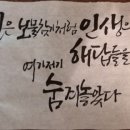 은 보물찾기처럼 인생의
해답들을
여기저기
숨겨놓았다